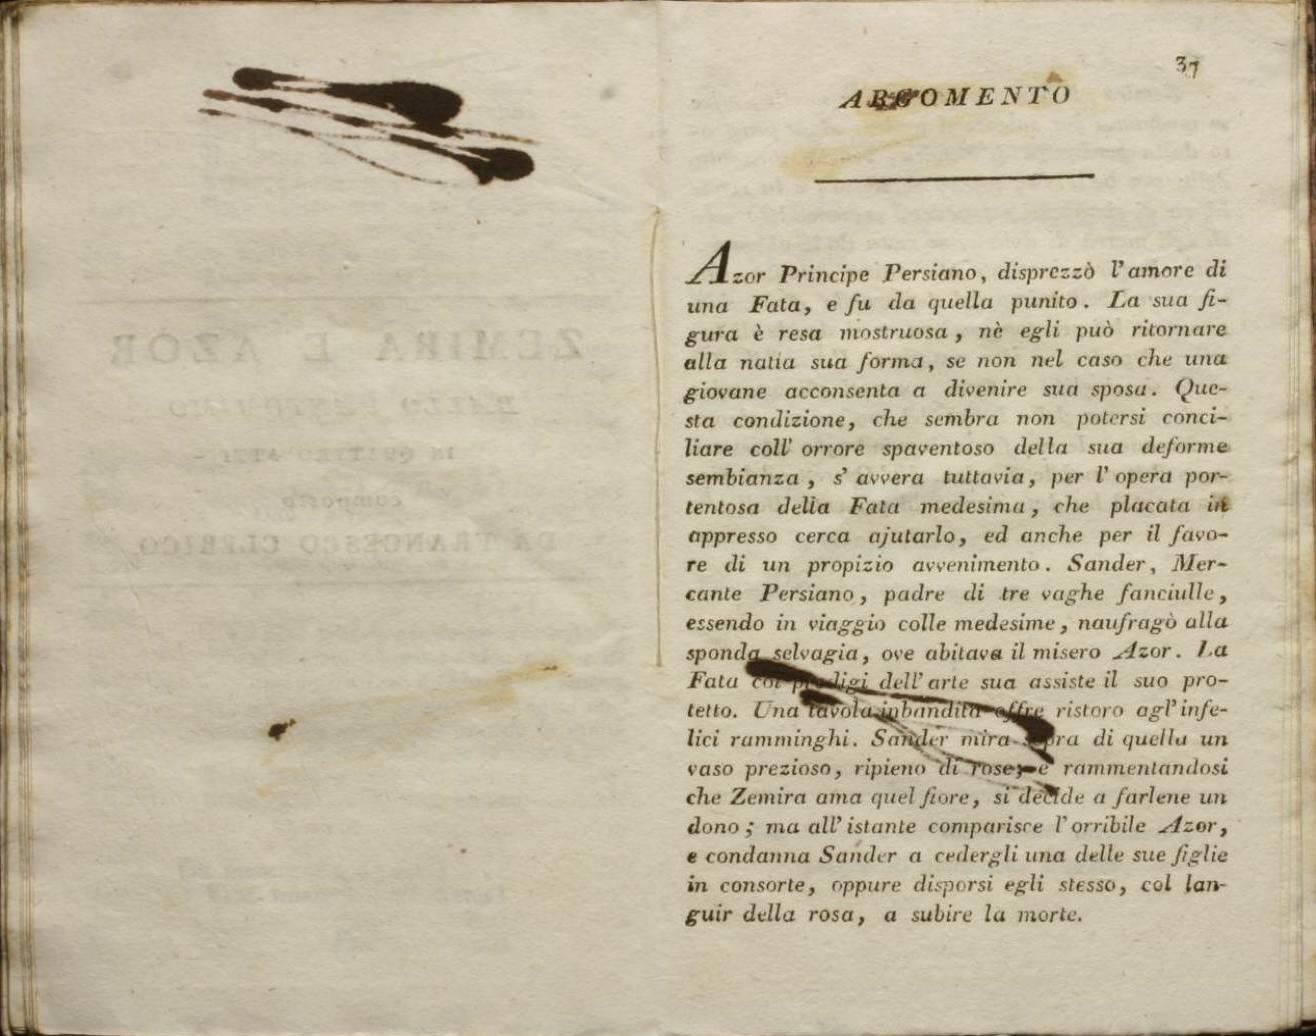 37
ARGOMENTO
Azor Principe Persiano, disprezzò l'amore di
una Fata, e fu da quella punito. La sua fi-
gura è resa mostruosa, nè egli può ritornare
alla natia sua forma, se non nel caso che una
giovane acconsenta a divenire sua sposa. Que-
sta condizione, che sembra non potersi conci-
liare coll' orrore spaventoso della sua deforme
sembianza, s' avvera tuttavia, per l' opera por-
tentosa della Fata medesima, che placata in
appresso cerca ajutarlo, ed anche per il favo-
re di un propizio avvenimento. Sander, Mer-
cante Persiano, padre di tre vaghe fanciulle,
essendo in viaggio colle medesime, naufragò alla
sponda selvagia, ove abitava il misero Azor. La
Fata coi prodigi dell' arte sua assiste il suo pro-
tetto. Una tavola inbandita offre ristoro agl' infe-
lici ramminghi. Sander mira sopra di quella un
vaso prezioso, ripieno di rose; e rammentandosi
che Zemira ama quel fiore, si decide a farlene un
dono; ma all' istante comparisce l' orribile Azor,
e condanna Sander a cedergli una delle sue figlie
in consorte, oppure disporsi egli stesso, col lan-
guir della rosa, a subire la morte.